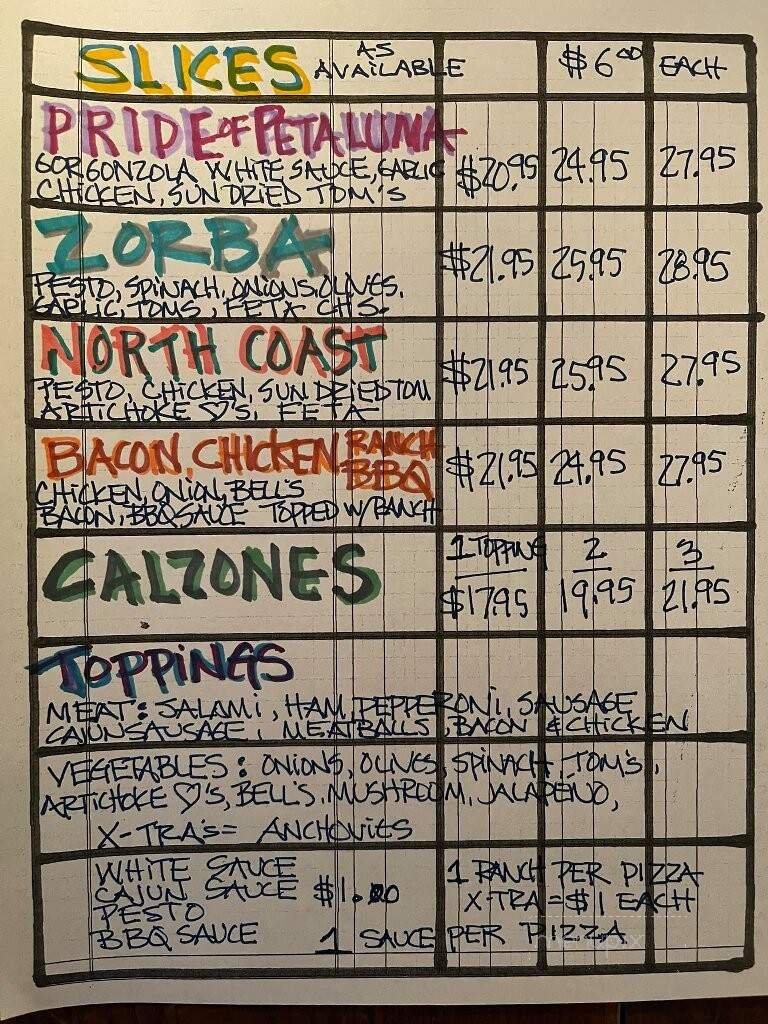 SLICES AS AVAILABLE $6.00 EACH
PRIDE OF PETALUMA
GORGONZOLA WHITE SAUCE, GARLIC $20.95 24.95 27.95
CHICKEN, SUN DRIED TOM'S
ZORBA $21.95 25.95 28.95
PESTO, SPINACH, ONIONS, OLIVES,
GARLIC, TOMS, FETA CHS.
NORTH COAST $21.95 25.95 27.95
PESTO, CHICKEN, SUN DRIED TOM
ARTICHOKE ♡'S, FETA
BACON, CHICKEN RANCH BBQ $21.95 24.95 27.95
CHICKEN, ONION, BELL'S
BACON, BBQ SAUCE TOPPED W/RANCH
CALZONES 1 TOPPING 2 3
$17.95 19.95 21.95
TOPPINGS
MEAT: SALAMI, HAM, PEPPERONI, SAUSAGE
CAJUN SAUSAGE, MEATBALLS, BACON & CHICKEN
VEGETABLES: ONIONS, OLIVES, SPINACH, TOM'S,
ARTICHOKE ♡'S, BELL'S, MUSHROOM, JALAPEÑO,
X-TRA'S= ANCHOVIES
WHITE SAUCE
CAJUN SAUCE $1.00
PESTO
BBQ SAUCE 1 SAUCE PER PIZZA
1 RANCH PER PIZZA
X-TRA = $1 EACH